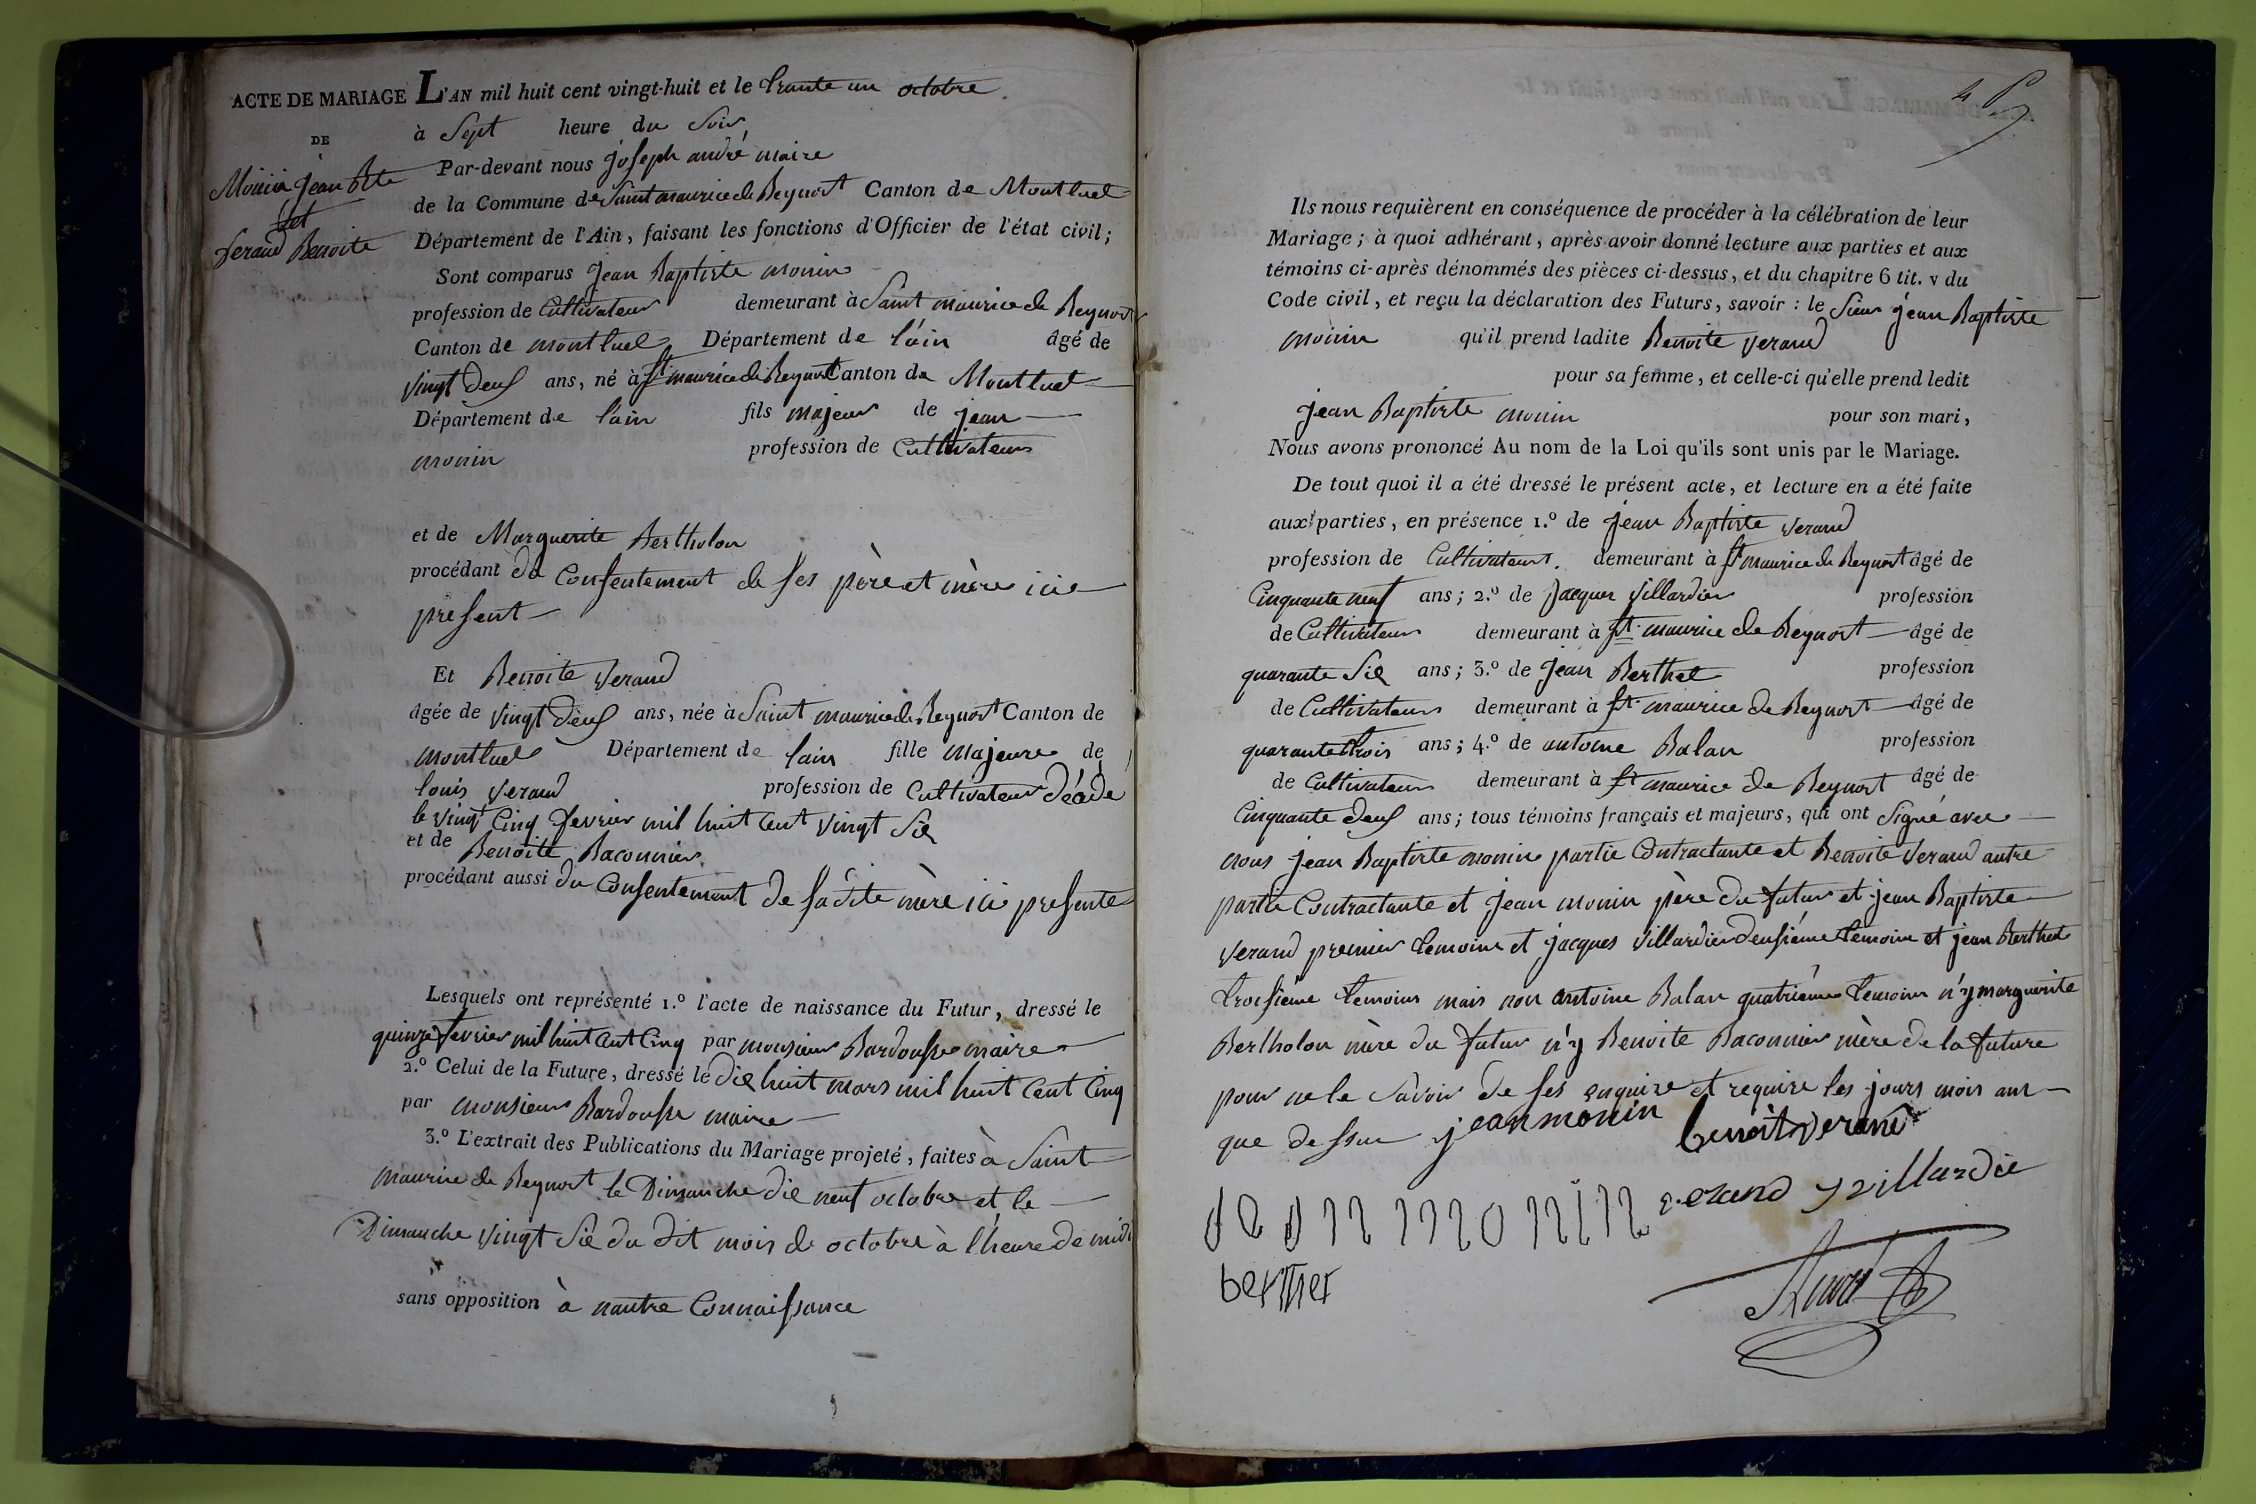 ACTE DE MARIAGE L'AN mil huit cent vingt-huit et le trante un octobre
DE
à Sept heure du Soir
Monin Jean Bte
et
Veraud Benoite
Par-devant nous joseph andré maire
de la Commune de Saint maurice de Beynost Canton de Montluel
Département de l'Ain, faisant les fonctions d'Officier de l'état civil;
Sont comparus Jean Baptiste monin
profession de Cultivateur demeurant à Saint maurice de Beynost
Canton de montluel Département de l'ain âgé de
vingt deux ans, né à St maurice de Beynost Canton de Montluel
Département de l'ain fils majeur de jean
monin profession de Cultivateur
et de Marguerite Bertholon
procédant du Consentement de ses père et mère icie
present
Et Benoite Veraud
âgée de vingt deux ans, née à Saint maurice de Beynost Canton de
montluel Département de lain fille majeure de
louis Veraud profession de Cultivateur décédé
le vingt Cinq fevrier mil huit Cent vingt Six
et de Benoite Baconnier
procédant aussi du Consentement de sa dite mère ici presente
Lesquels ont représenté 1.º l'acte de naissance du Futur, dressé le
quinze fevrier mil huit Cent Cinq par monsieur Bardousse maire
2.º Celui de la Future, dressé le dix huit mars mil huit Cent Cinq
par monsieur Bardousse maire
3.º L'extrait des Publications du Mariage projeté, faites à Saint
maurice de Beynost le Dimanche dix neuf octobre et le
Dimanche vingt Six du dit mois de octobre à l'heure de midi
sans opposition à nautre Connaissance
Ils nous requièrent en conséquence de procéder à la célébration de leur
Mariage; à quoi adhérant, après avoir donné lecture aux parties et aux
témoins ci-après dénommés des pièces ci-dessus, et du chapitre 6 tit. v du
Code civil, et reçu la déclaration des Futurs, savoir: le Sieur jean Baptiste
monin qu'il prend ladite Benoite Veraud
pour sa femme, et celle-ci qu'elle prend ledit
Jean Baptiste monin pour son mari,
Nous avons prononcé Au nom de la Loi qu'ils sont unis par le Mariage.
De tout quoi il a été dressé le présent acte, et lecture en a été faite
aux parties, en présence 1.º de Jean Baptiste Veraud
profession de Cultivateur. demeurant à St maurice de Beynost âgé de
Cinquante neuf ans; 2.º de Jacques Villardier profession
de Cultivateur demeurant à St maurice de Beynost âgé de
quarante Six ans; 3.º de Jean Berthet profession
de Cultivateur demeurant à St maurice de Beynost âgé de
quarante trois ans; 4.º de antoine Balan profession
de Cultivateur demeurant à St maurice de Beynost âgé de
Cinquante deux ans; tous témoins français et majeurs, qui ont Signé avec
nous Jean Baptiste monin partie Contractante et Benoite Veraud autre
partie Contractante et Jean monin père du futur et jean Baptiste
Veraud premier temoins et jacques Villardier deusième temoins et jean Berthet
troisième temoins mais non antoine Balan quatrième temoins n'y marguerite
Bertholon mère du futur n'y Benoite Baconnier mère de la future
pour ne le Savoir de ses enquire et require les jours mois an
que dessur jean monin benoit verand
jean monin verand j villardie
berthet
André